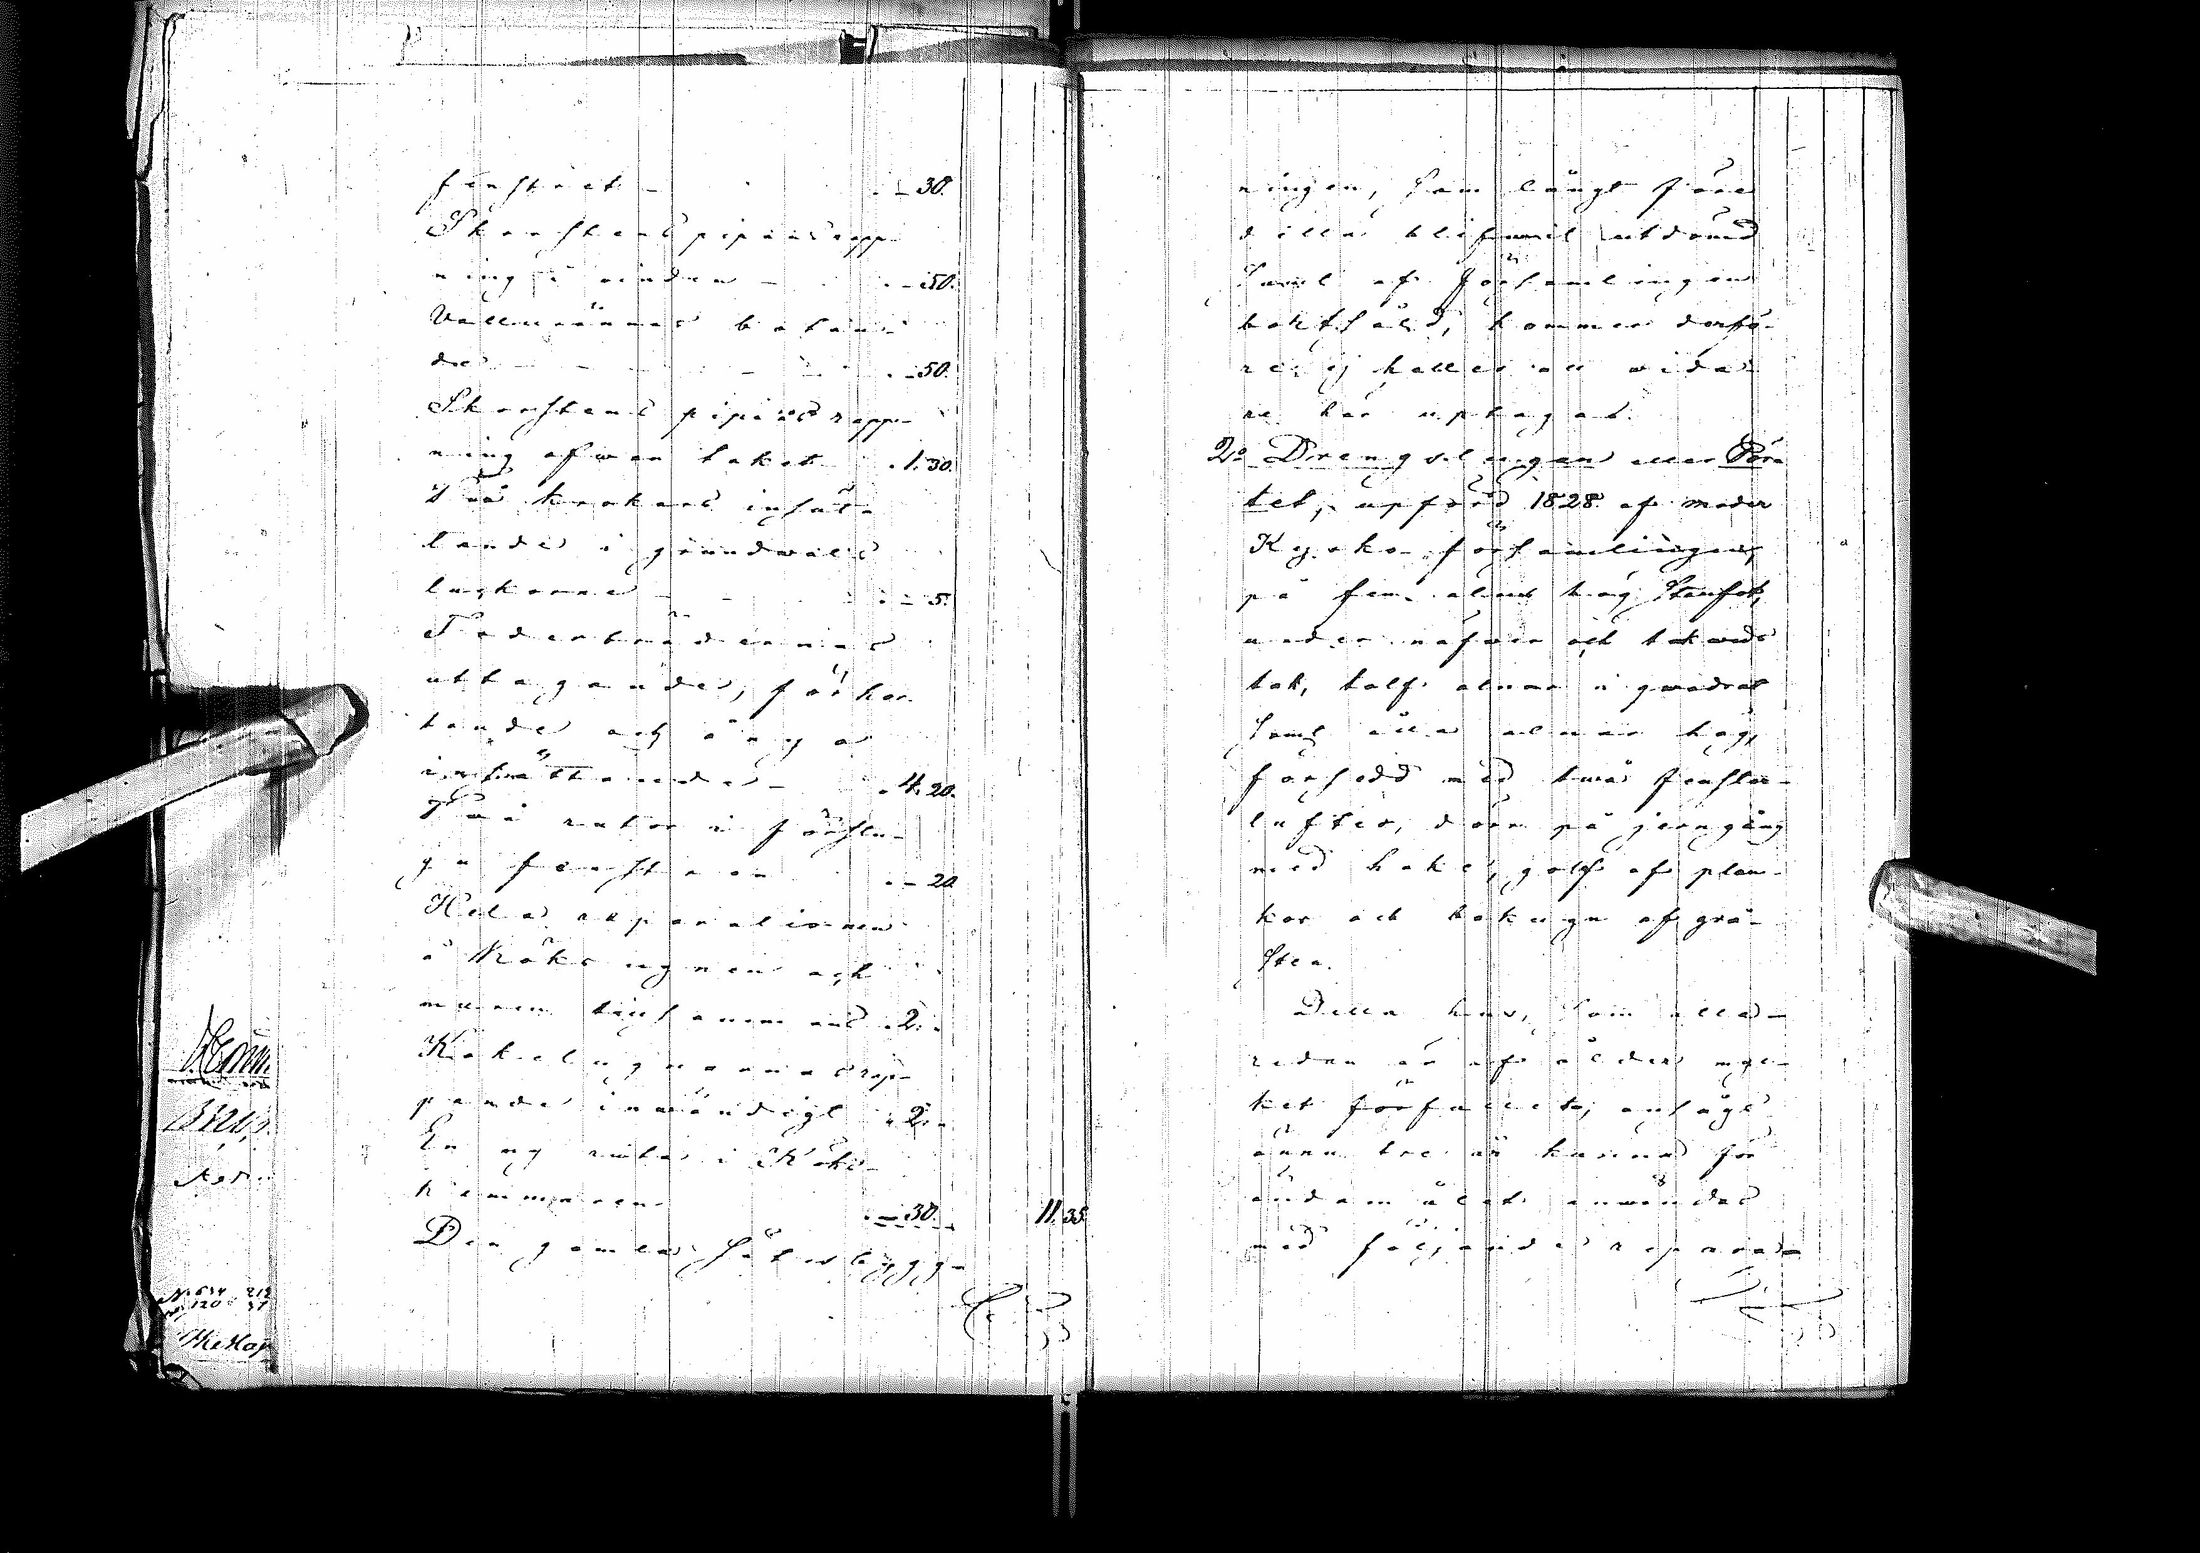 fenstret - . - 30.
Skorstens pipans rapp-
ning i vinden - . - 50.
Vattu rännas botan-
de - - - . - 50.
Skorstens pipans rapp-
ning ofwan taket . 1. 30.
Två krokars insät-
tande i grundwals
luckorne - - . - 5.
Foderbrädernas
uttagande, förkor-
tande och å nyo
insättande - . 4. 20.
Två rutor i förstu-
gu fenstren . - 20
Hela reparationen
å Köks ugnen och
muren tillsammans . 2. -
Kakelugnarnas rap-
pande inwändigt . 2. -
En ny ruta i Köks-
kammaren . - 30. 11. 35
Den gamla Sätesbyggg-
ningen, som längst före
detta blifwit utdömd
samt af Församlingen
bortsåld, kommer derfö-
re ej heller att wida-
re här uptagas.
2o Drengstugan eller Pör-
tet, upförd 1828 af moder
Kyrko församlingen,
på fem alnar hög Stenfot,
under näfwer och takweds
tak, tolf alnar i qwadrat
samt åtta alnar hög,
försedd med twå fenster-
lufter, dörr på jerngång
med hake, golf af plan-
kor och bakugn af grå-
sten.
Detta hus, som alla-
redan är af ålder myc-
ket förfallet, ansågs
ännu tre år kunna för
ändamålet anwändas
med följande repara-